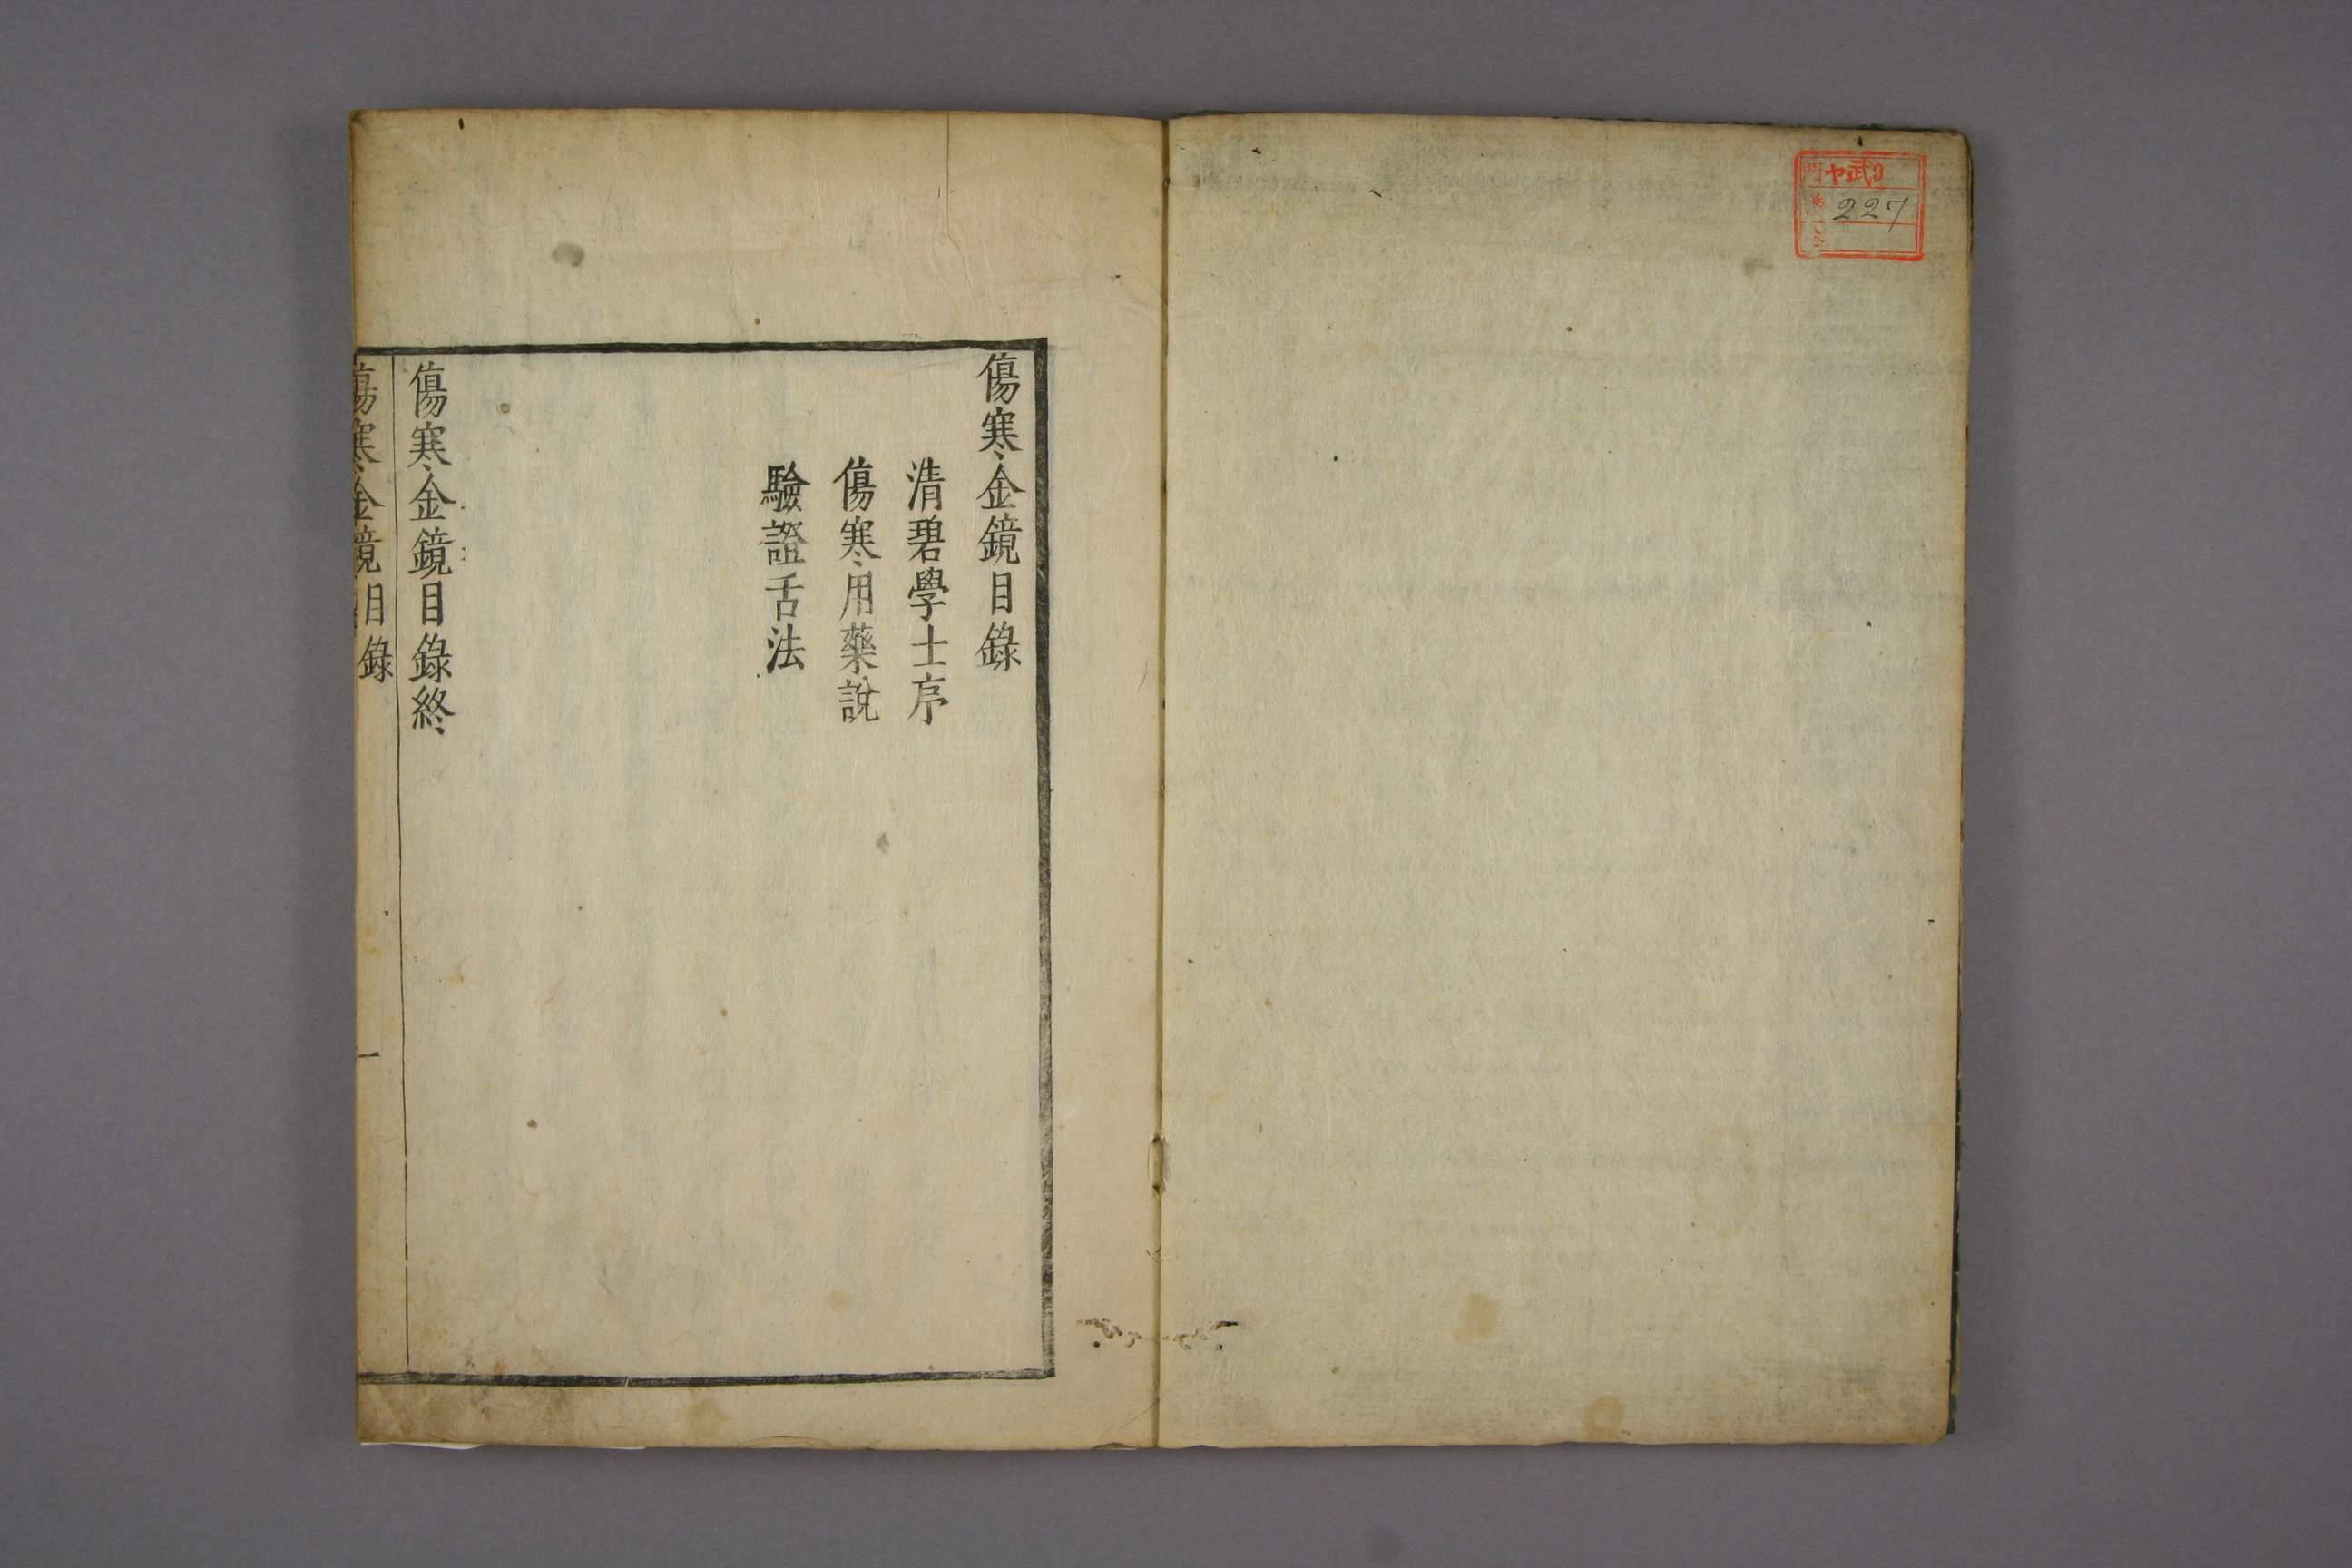 門 ヤ武9
227
傷寒金鏡目錄
清碧學士序
傷寒用藥說
驗證舌法
傷寒金鏡目錄終
傷寒金鏡目錄
一